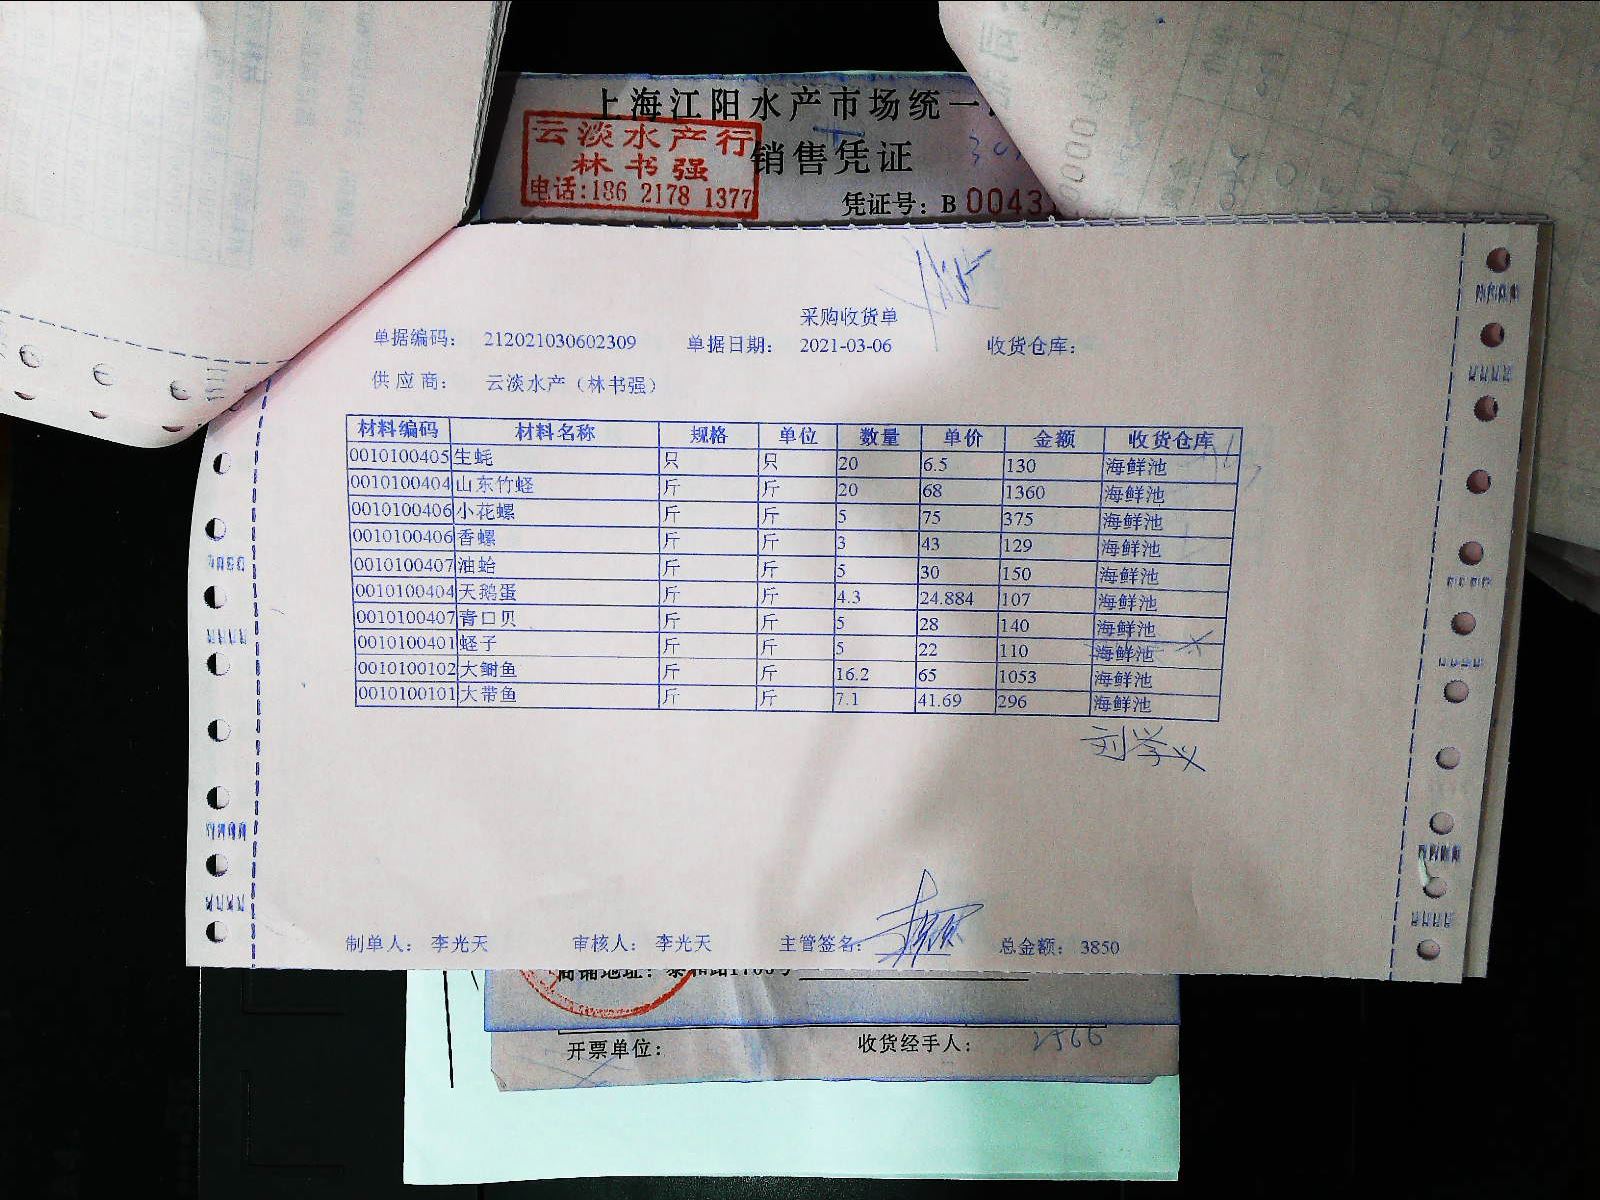 上海江阳水产市场统一
云淡水产行
林书强
电话:186 2178 1377
销售凭证
凭证号: B 0043
采购收货单
单据编码: 212021030602309 单据日期: 2021-03-06 收货仓库:
供应商: 云淡水产（林书强）
材料编码 材料名称 规格 单位 数量 单价 金额 收货仓库
0010100405 生蚝 只 只 20 6.5 130 海鲜池
0010100404 山东竹蛏 斤 斤 20 68 1360 海鲜池
0010100406 小花螺 斤 斤 5 75 375 海鲜池
0010100406 香螺 斤 斤 3 43 129 海鲜池
0010100407 油蛤 斤 斤 5 30 150 海鲜池
0010100404 天鹅蛋 斤 斤 4.3 24.884 107 海鲜池
0010100407 青口贝 斤 斤 5 28 140 海鲜池
0010100401 蛏子 斤 斤 5 22 110 海鲜池
0010100102 大鮰鱼 斤 斤 16.2 65 1053 海鲜池
0010100101 大带鱼 斤 斤 7.1 41.69 296 海鲜池
刘学义
制单人: 李光天 审核人: 李光天 主管签名: 总金额: 3850
商铺地址: 泰和路1706号
开票单位: 收货经手人: